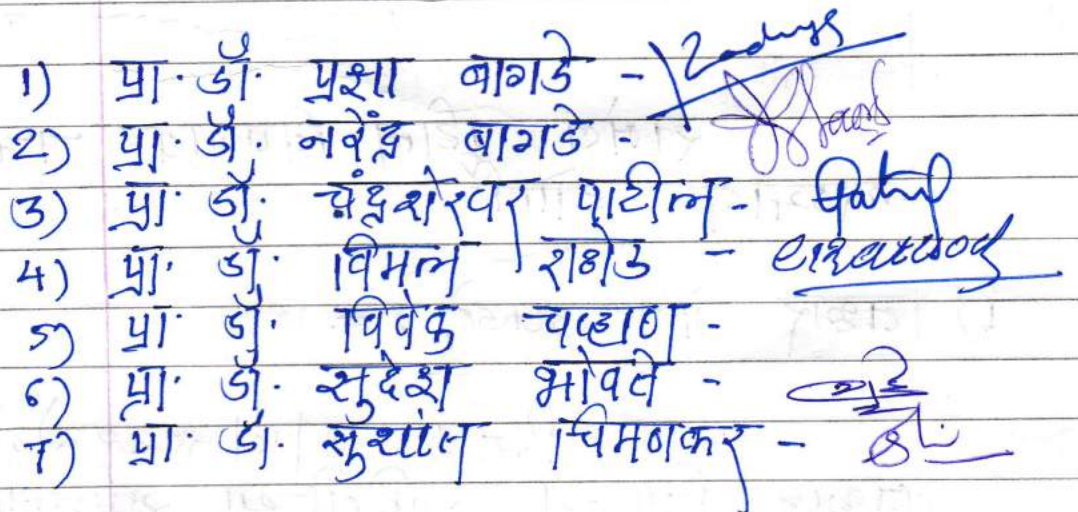 1) प्रा. डॉ. प्रज्ञा बागडे -
2) प्रा. डॉ. नरेंद्र बागडे -
3) प्रा. डॉ. चंद्रशेखर पाटील - Patil
4) प्रा. डॉ. विमल राठोड -
5) प्रा. डॉ. विवेक चव्हाण -
6) प्रा. डॉ. सुदेश भोवते -
7) प्रा. डॉ. सुशांत चिमणकर -